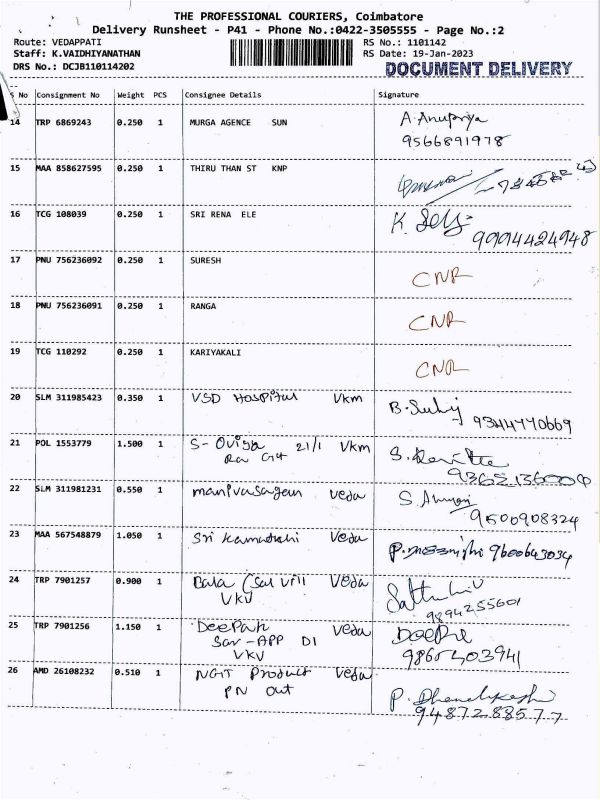 THE PROFESSIONAL COURIERS, Coimbatore
Delivery Runsheet - P41 - Phone No.:0422-3505555 - Page No.:2
Route: VEDAPPATI RS No.: 1101142
Staff: K.VAIDHIYANATHAN RS Date: 19-Jan-2023
DRS No.: DCJB110114202 DOCUMENT DELIVERY
S No Consignment No Weight PCS Consignee Details Signature
14 TRP 6869243 0.250 1 MURGA AGENCE SUN A. Anupriya
9566891978
15 MAA 858627595 0.250 1 THIRU THAN ST KNP
16 TCG 108039 0.250 1 SRI RENA ELE K. Selvi
9994424948
17 PNU 756236092 0.250 1 SURESH CNR
18 PNU 756236091 0.250 1 RANGA CNR
19 TCG 110292 0.250 1 KARIYAKALI CNR
20 SLM 311985423 0.350 1 VSD Hospital Vkm
9344770669
21 POL 1553779 1.500 1 S- Oviya 21/1 Vkm
22 SLM 311981231 0.550 1 manivasagan veda
9500908324
23 MAA 567548879 1.050 1 Sri Kamatchi Veda 9600643034
24 TRP 7901257 0.900 1 Bala Veda
VKV 9894255601
25 TRP 7901256 1.150 1 Deepak Veda
Sar-APP D1
VKV
26 AMD 26108232 0.510 1 NGIT Product Veda
PN out
9487288577